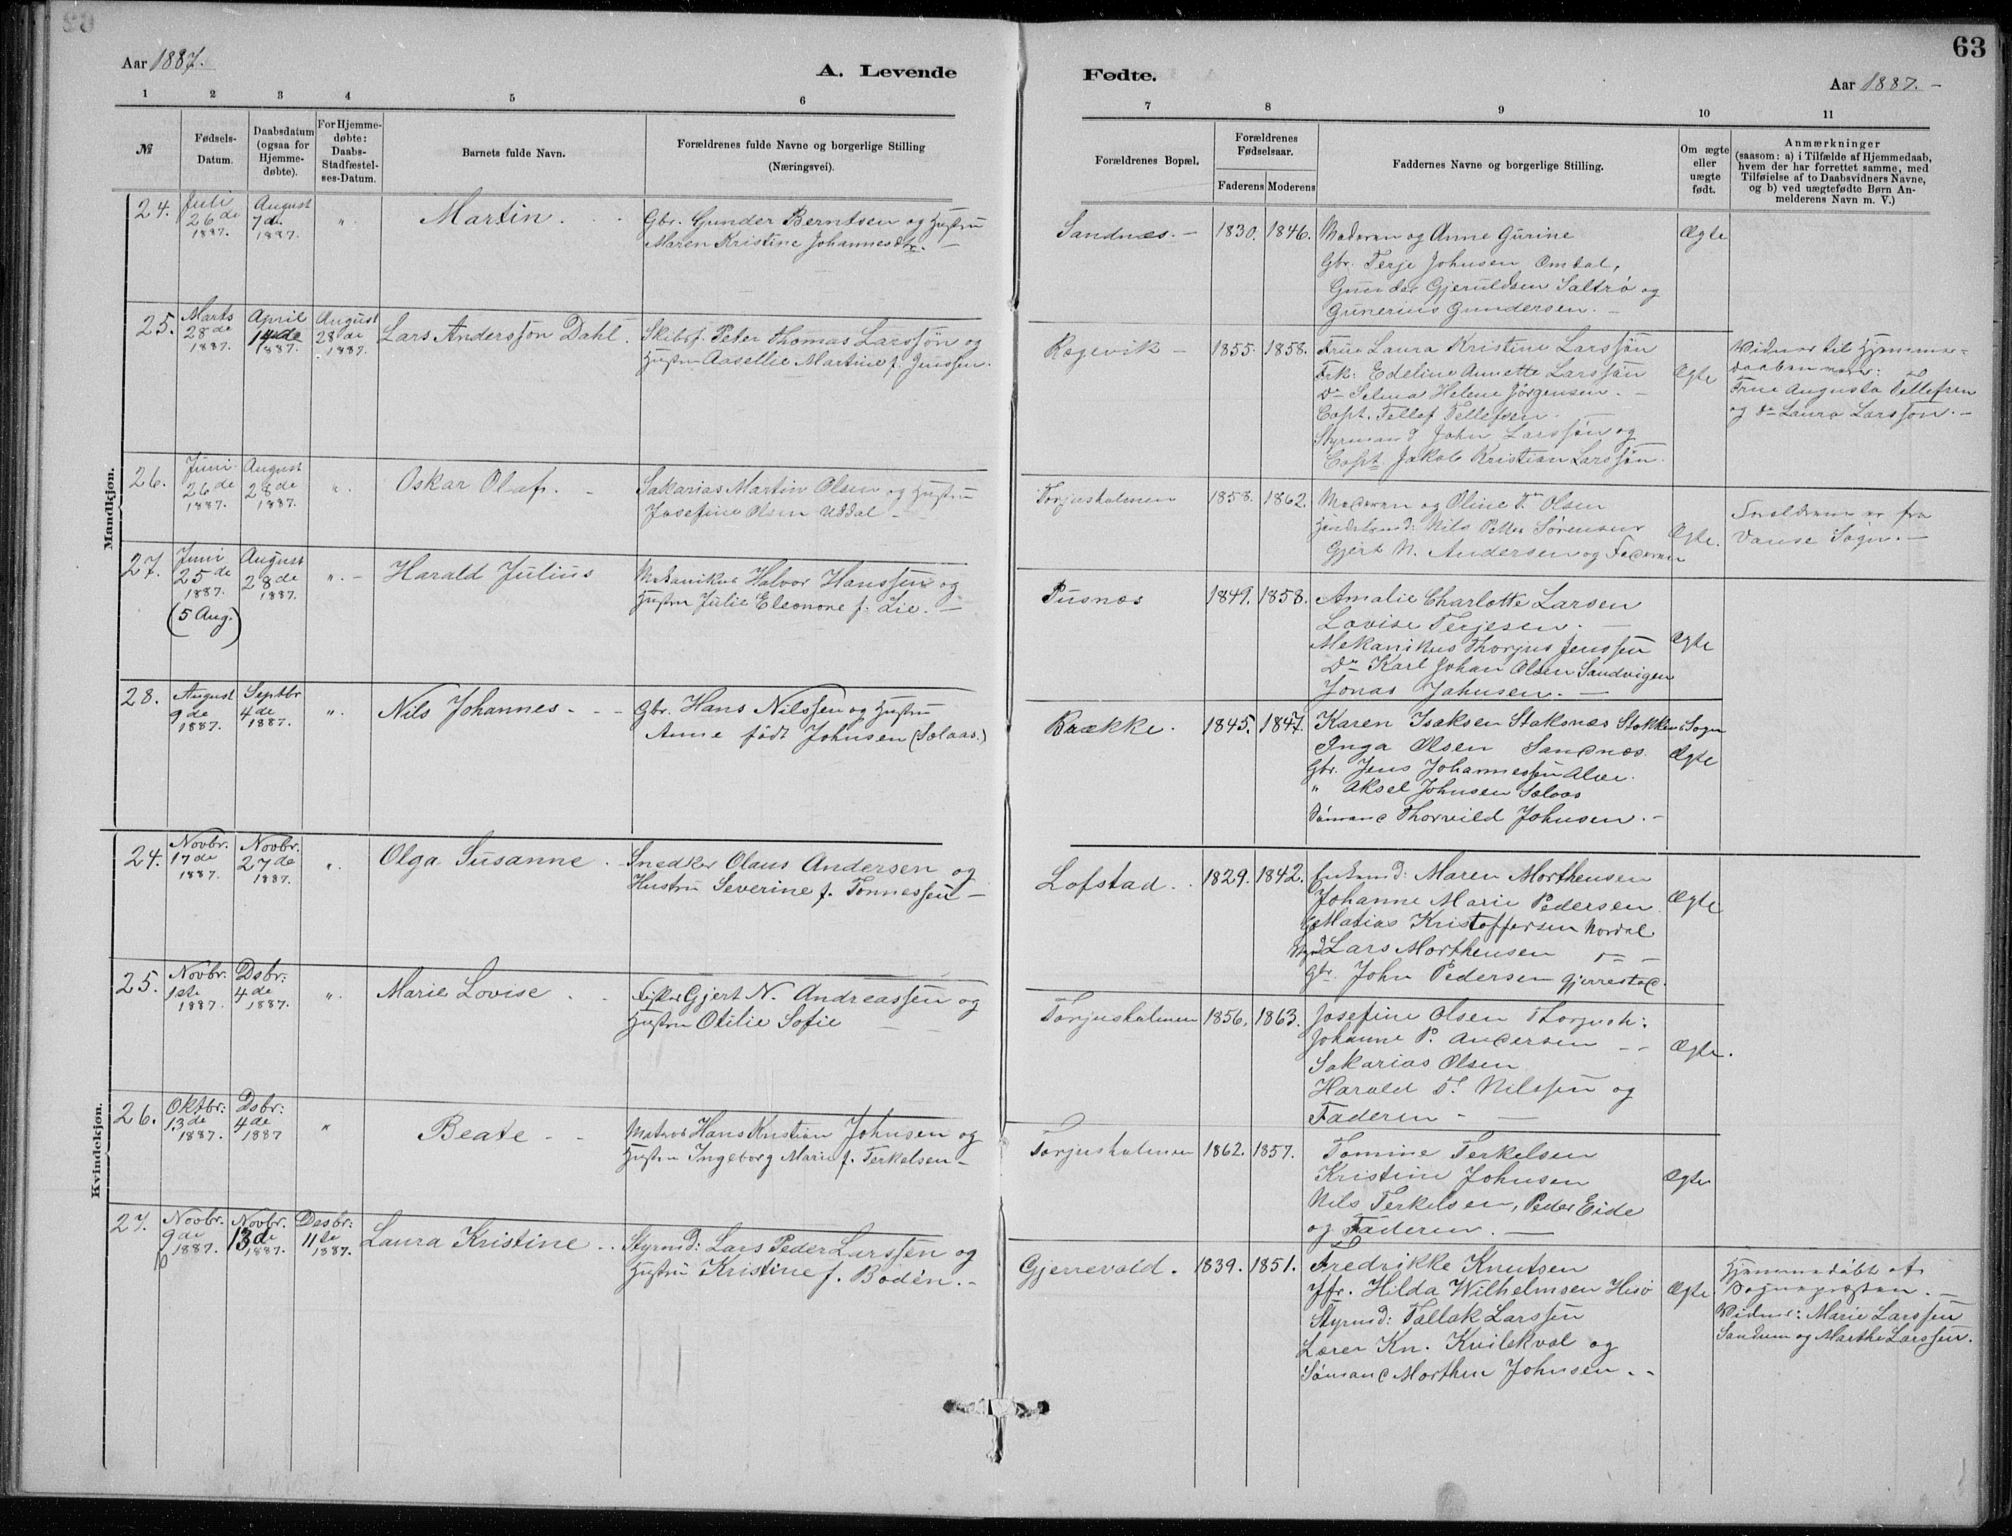 63
Aar 1887.
A. Levende
Fødte.
Aar 1887. -
1 2 3 4 5 6
7 8 9 10 11
№
Fødsels-
Datum.
Daabsdatum
(ogsaa for
Hjemme-
døbte).
For Hjemme-
døbte:
Daabs-
Stadfæstel-
ses-Datum.
Barnets fulde Navn.
Forældrenes fulde Navne og borgerlige Stilling
(Næringsvei).
Forældrenes Bopæl.
Forældrenes
Fødselsaar.
Faderens
Moderens
Faddernes Navne og borgerlige Stilling.
Om ægte
eller
uægte
født.
Anmærkninger
(saasom: a) i Tilfælde af Hjemmedaab,
hvem der har forrettet samme, med
Tilføielse af to Daabsvidners Navne,
og b) ved uægtefødte Børn An-
melderens Navn m. V.)
Mandkjøn.
24.
Juli
26 de
1887.
August
7 d.
1887.
".
Martin.
Gbr. Gunder Berntsen og Hustru
Maren Kristine Johannesdtr. -
Sandnæs. -
1830. 1846.
Moderen og Anne Gurine
Gbr. Terje Johnsen Omdal,
Gunder Gjeruldsen Saltrø og
Gunerius Gundersen. -
Ægte
25.
Marts
28 de
1887.
April
14 de
1887.
August
28 de
1887.
Lars Anderssøn Dahl.
Skibsf. Peter Thomas Larssøn og
Hustru Aasellie Martine f. Jenssen.
Rægevik -
1855. 1858.
Frue Laura Kristine Larssøn
Frk: Edeline Annette Larssøn
Do Selma Helene Jörgensen. -
Capt. Tellef Tellefsen. -
Styrmand John Larssøn og
Capt Jakob Kristian Larssøn.
Ægte
Vidner til Hjemme-
daaben :
Frue Augusta Tellefsen
og do Laura Larssøn. -
26.
Juni
26 de
1887.
August
28 de
1887.
".
Oskar Olaf. -
Sakarias Martin Olsen og Hustru
Josefine Olsen Uddal -
Torjusholmen
1858. 1862.
Moderen og Oline Olsen
Nils Petter Sørensen
Gjert N. Andersen og Faderen
Ægte.
Forældrene er fra
Vanse Sogn. -
27.
Juni
25 de
1887.
(5 Aug.)
August
28 de
1887.
". -
Harald Julius
Mekanikus Halvor Hanssen og
Hustru Julie Eleonore f. Lie. -
Pusnæs
1849. 1858.
Amalie Charlotte Larsen
Lovise Terjesen. -
Mekanikus Thorjus Jenssen
Do Karl Johan Olsen Sandvigen
Jonas Johnsen. -
Ægte
28.
August
9 de
1887.
Septbr
4 de
1887.
".
Nils Johannes. - -
Gbr. Hans Nilssen og Hustru
Anne født Johnsen (Solaas.)
Brække.
1845. 1847.
Karen Isaksen Staksnæs Stokken Sogn
Inga Olsen Sandnæs.
Gbr. Jens Johannessen Alve.
" Aksel Johnsen Solaas
Sømand Thorvild Johnsen. -
Ægte
Kvindekjøn.
24.
Novbr.
17 de
1887.
Novbr.
27 de
1887.
".
Olga Susanne.
Snedker Olaus Andersen og
Hustru Severine f. Tønnessen -
Lofstad.
1829. 1842.
Maren Morthensen
Johanne Marie Pedersen
Matias Kristoffersen Nordal
Lars Morthensen
Gbr. John Pedersen Gjerrestad.
Ægte
25.
Novbr.
1ste
1887.
Dsbr:
4 de
1887.
".
Marie Lovise.
Fisker Gjert N. Andreassen og
Hustru Otilie Sofie
Torjusholmen
1856. 1863.
Josefine Olsen Thorjush:
Johanne P. Andersen - -
Sakarias Olsen
Harald T. Nilssen og
Faderen - -
Ægte.
26.
Oktbr:
13 de
1887.
Dsbr:
4 de
1887
"
Beate - -
Matros Hans Kristian Johnsen og
Hustru Ingeborg Marie f. Terkelsen -
Torjusholmen
1862. 1857.
Tomine Terkelsen
Kristine Johnsen
Nils Terkelsen, Peder Eide
og Faderen. -
Ægte
27.
Novbr.
9 de
1887.
Novbr.
13 de
1887.
Desbr:
11te
1887.
Laura Kristine. .
Styrmd: Lars Peder Larssen og
Hustru Kristine f. Bodén. -
Gjerrevold.
1839. 1851.
Fredrikke Knutsen
Jfr. Hilda Wilhelmsen Hisø
Styrmd: Tallak Larssen
Lærer Kn. Kvilekval og
Sømand Morthen Johnsen. -
Ægte
Hjemmedøbt af
Sognepræsten. -
Vidner: Marie Larssen
Sandum og Marthe Larssen.